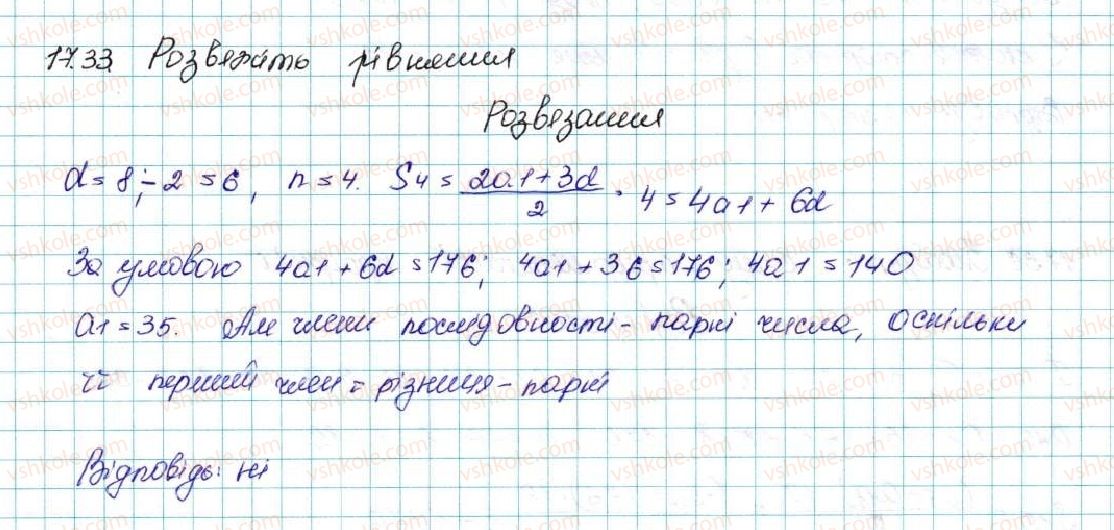 17.33 Розвезать рівнення
Розвезання
d = 8 ; - 2 = 6, n = 4. S4 = (2a1 + 3d)/2 · 4 = 4a1 + 6d
За умовою 4a1 + 6d = 176; 4a1 + 36 = 176; 4a1 = 140
a1 = 35. Але члени послідовності - парні числа, оскільки
її перший член = різниця - парні
Відповідь: ні